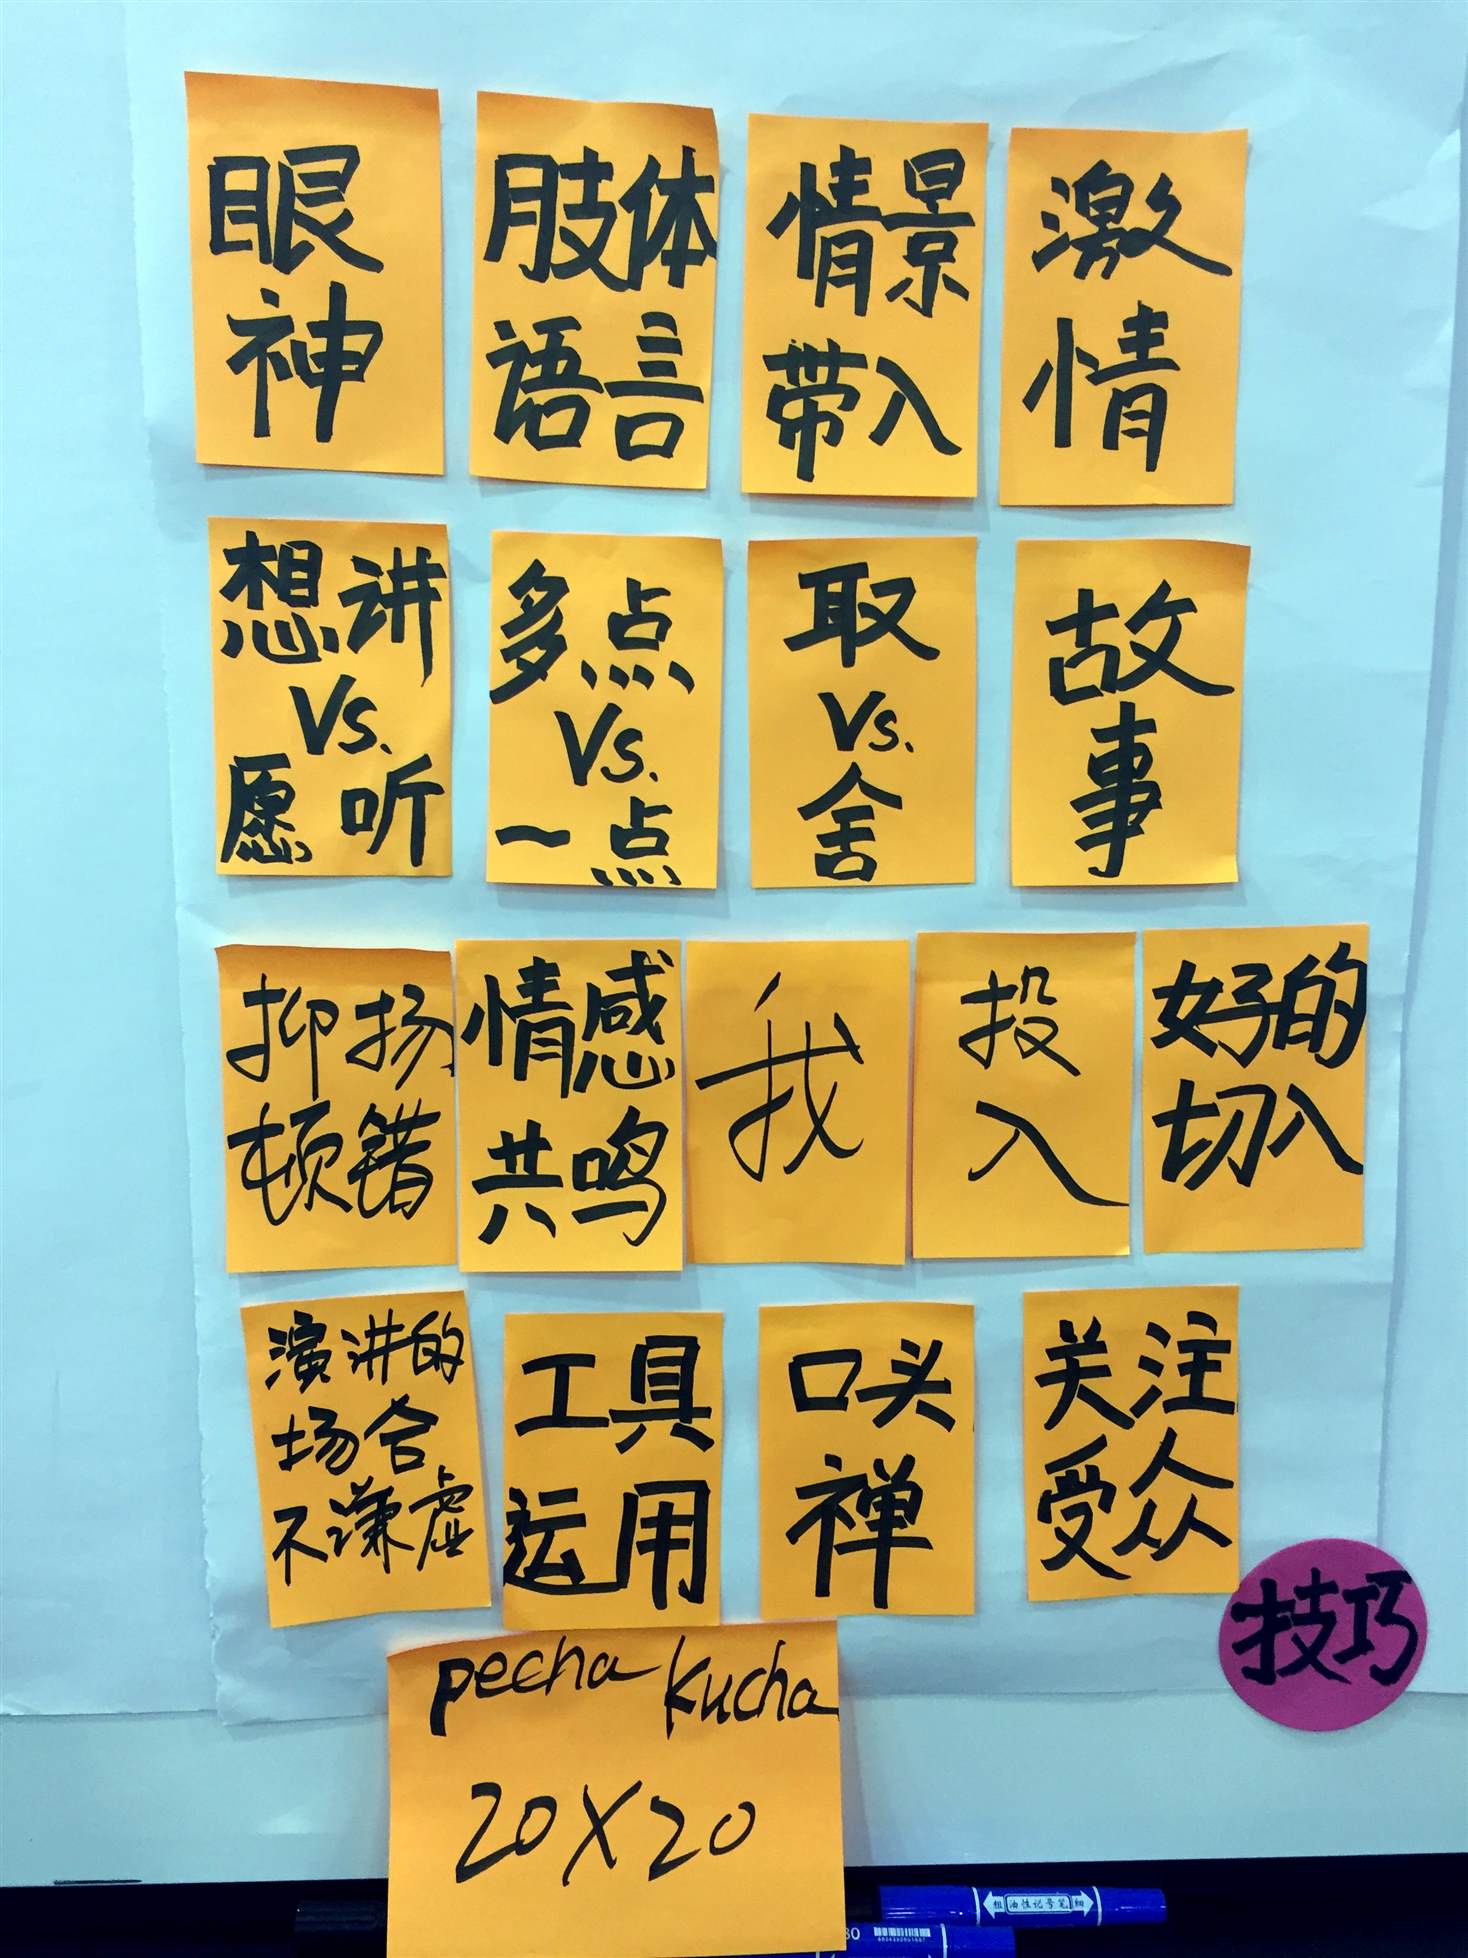 眼
神
肢体
语言
情景
带入
激
情
想讲
Vs.
愿听
多点
Vs.
一点
取
Vs.
舍
故
事
抑扬
顿错
情感
共鸣
我
投
入
好的
切入
演讲的
场合
不谦虚
工具
运用
口头
禅
关注
受众
技巧
pecha kucha
20X20
粗 油性记号笔 细